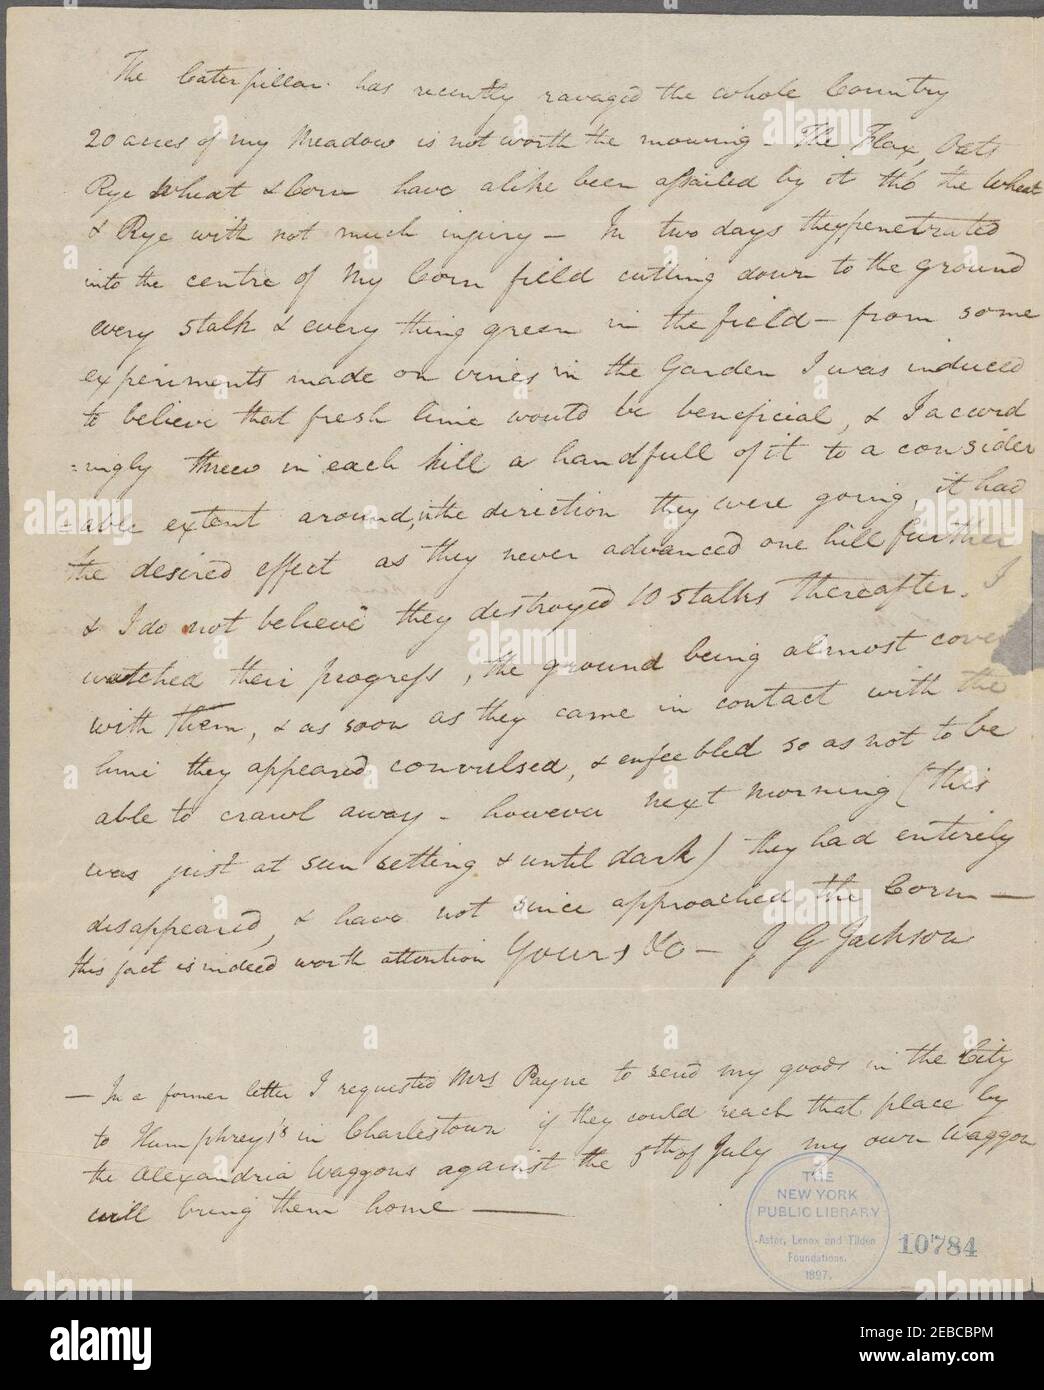 The Caterpillar has recently ravaged the whole Country
20 acres of my Meadow is not worth the mowing - The Flax, Oats
Rye Wheat & Corn have alike been assailed by it tho' the Wheat
& Rye with not much injury - In two days they penetrated
into the centre of My Corn field cutting down to the ground
every stalk & every thing green in the field - from some
experiments made on vines in the Garden I was induced
to believe that fresh lime would be beneficial, & I accord
=ingly threw in each hill a handfull of it to a consider
=able extent around, in the direction they were going, it had
the desired effect as they never advanced one hill further
& I do not believe they destroyed 10 stalks thereafter. I
watched their progress, the ground being almost cove
with them, & as soon as they came in contact with the
lime they appeared convulsed, & enfeebled so as not to be
able to crawl away - however next morning (this
was just at sun setting & until dark) they had entirely
disappeared, & have not since approached the Corn -
this fact is indeed worth attention Yours &c - J G Jackson
- In a former letter I requested Mrs Payne to send my goods in the City
to Humphreys's in Charlestown if they could reach that place by
the Alexandria Waggons against the 5th of July my own Waggon
will bring them home -
THE
NEW YORK
PUBLIC LIBRARY
Astor, Lenox and Tilden
Foundations.
1897.
10784
alamy
2EBCBPM
www.alamy.com